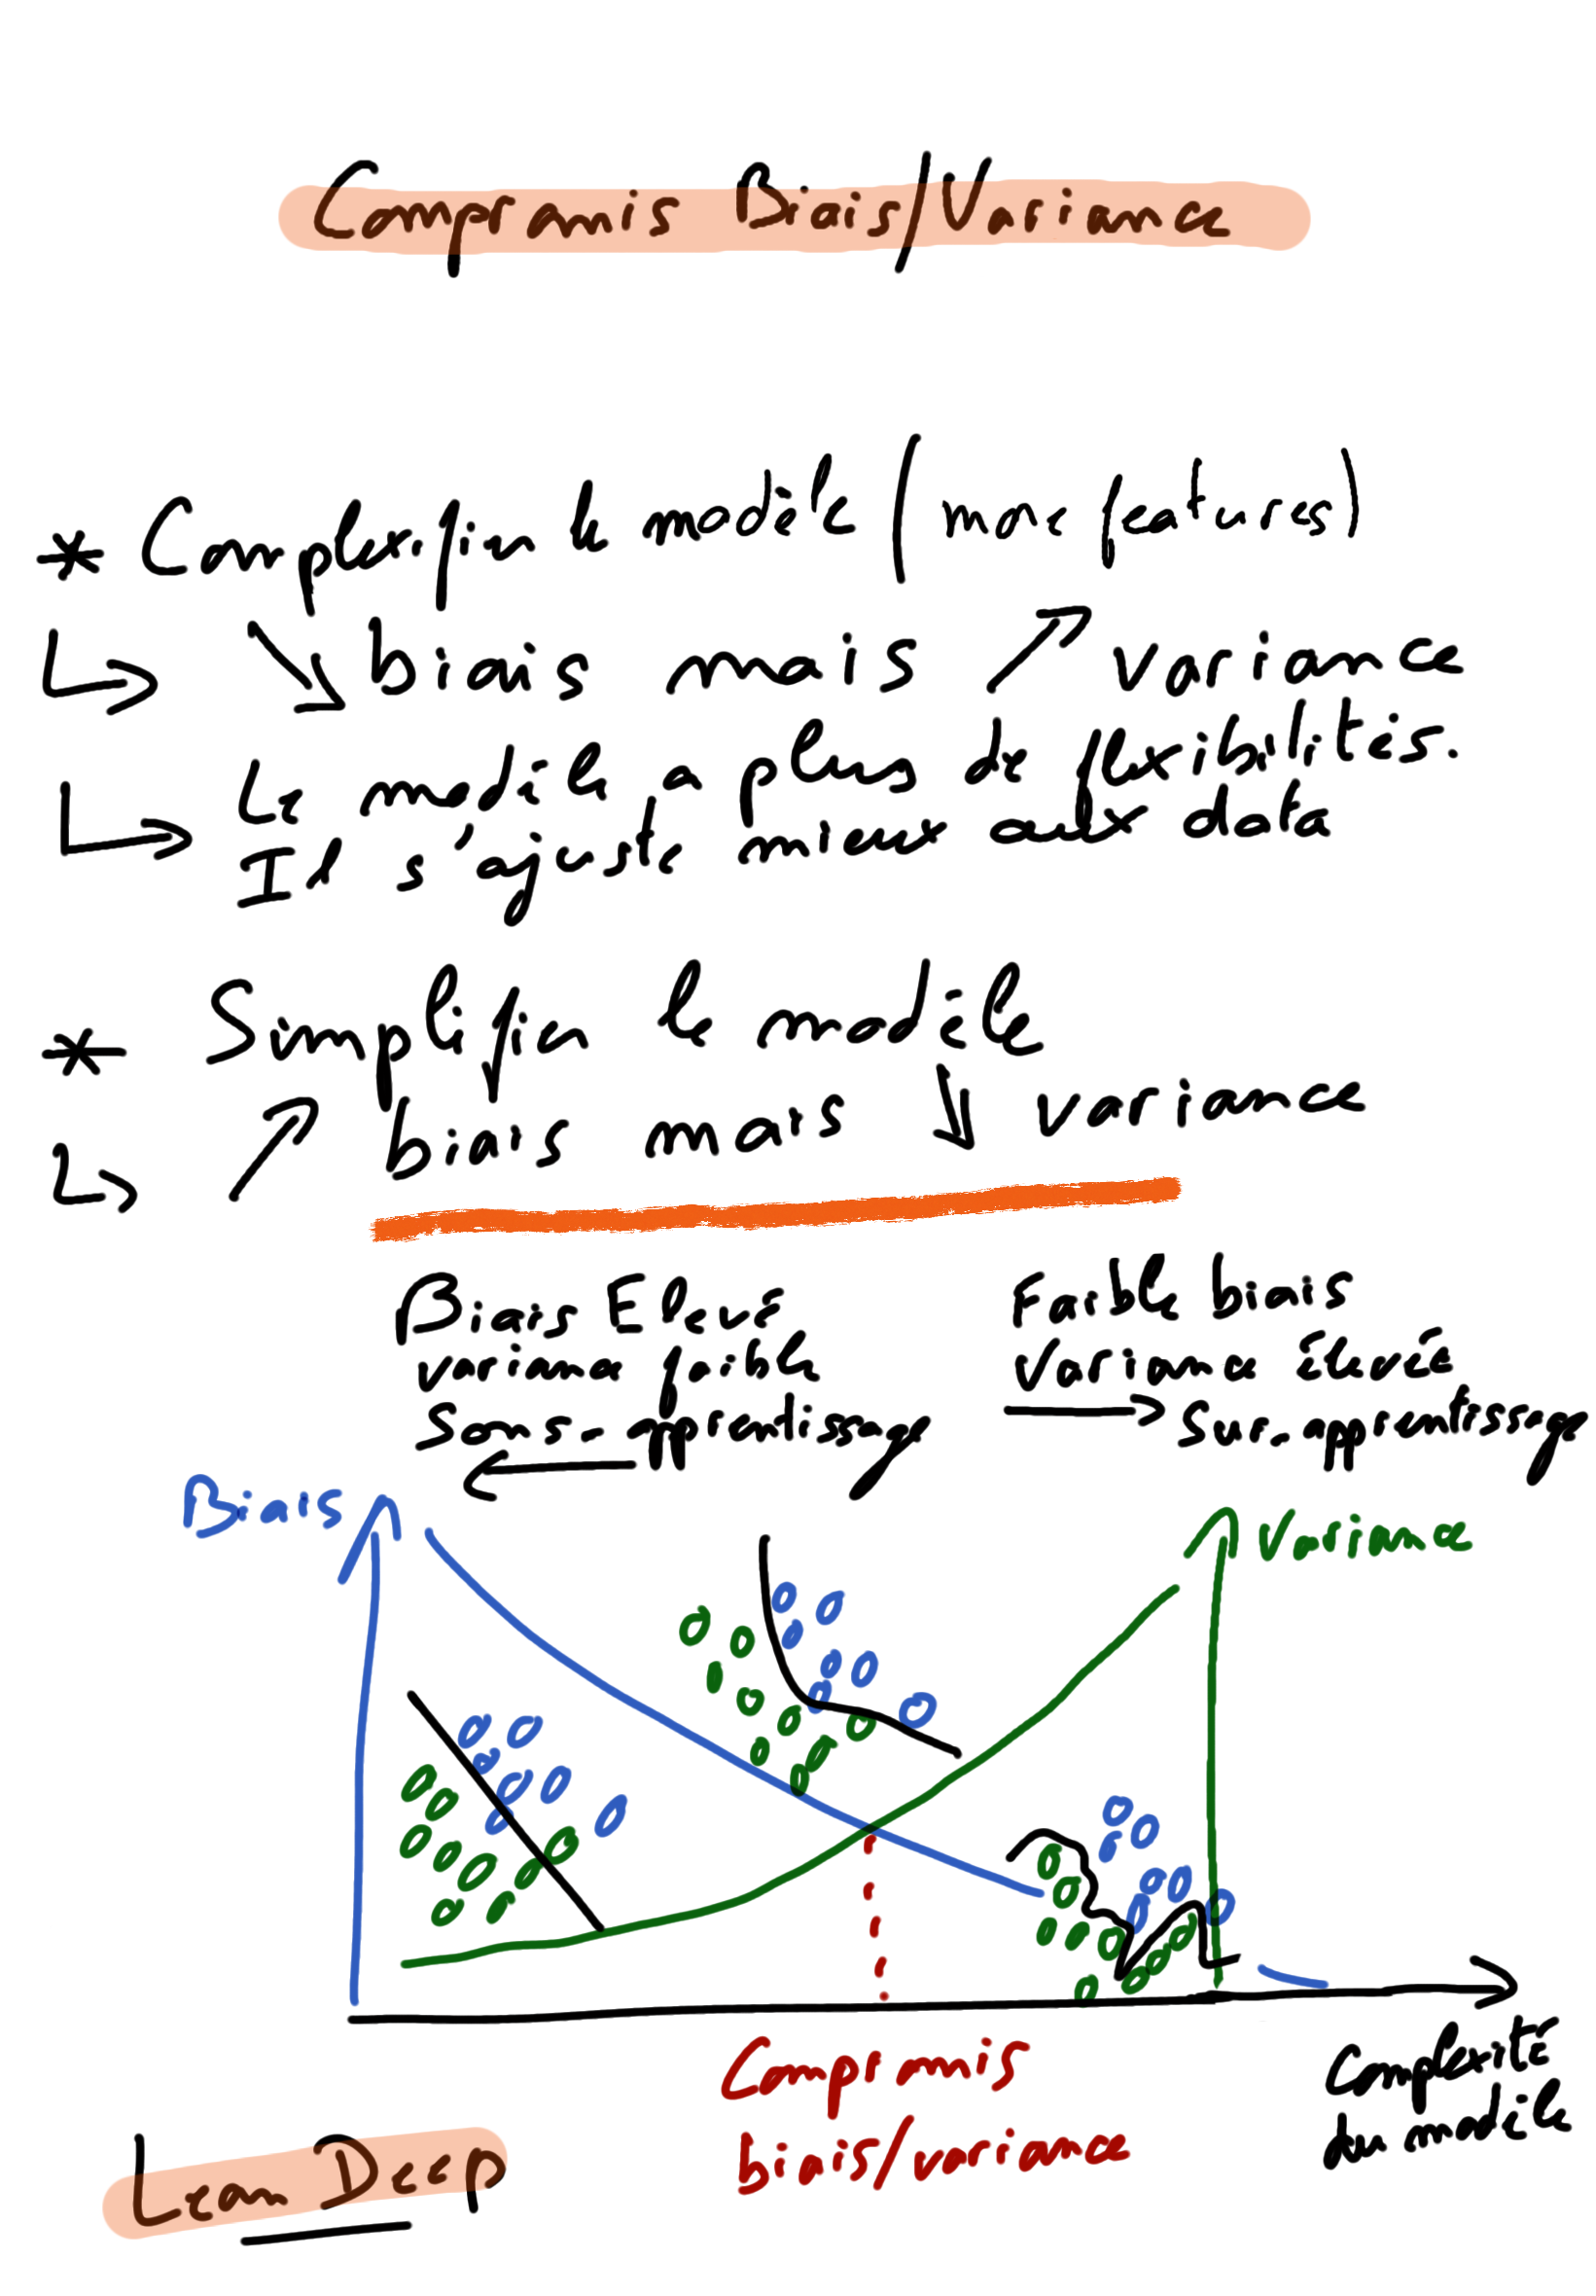 Compromis Biais/Variance
* Complexifier le modèle (more features)
↳ ↘ biais mais ↗ variance
↳ Le modèle a plus de flexibilités.
Il s'ajuste mieux aux data
* Simplifier le modèle
↳ ↗ biais mais ↓ variance
Biais Elevé
variance faible
Sous-apprentissage
←
Faible biais
Variance élevée
→ Sur-apprentissage
Biais
Variance
Compromis
biais/variance
Complexité
du modèle
Lean Deep